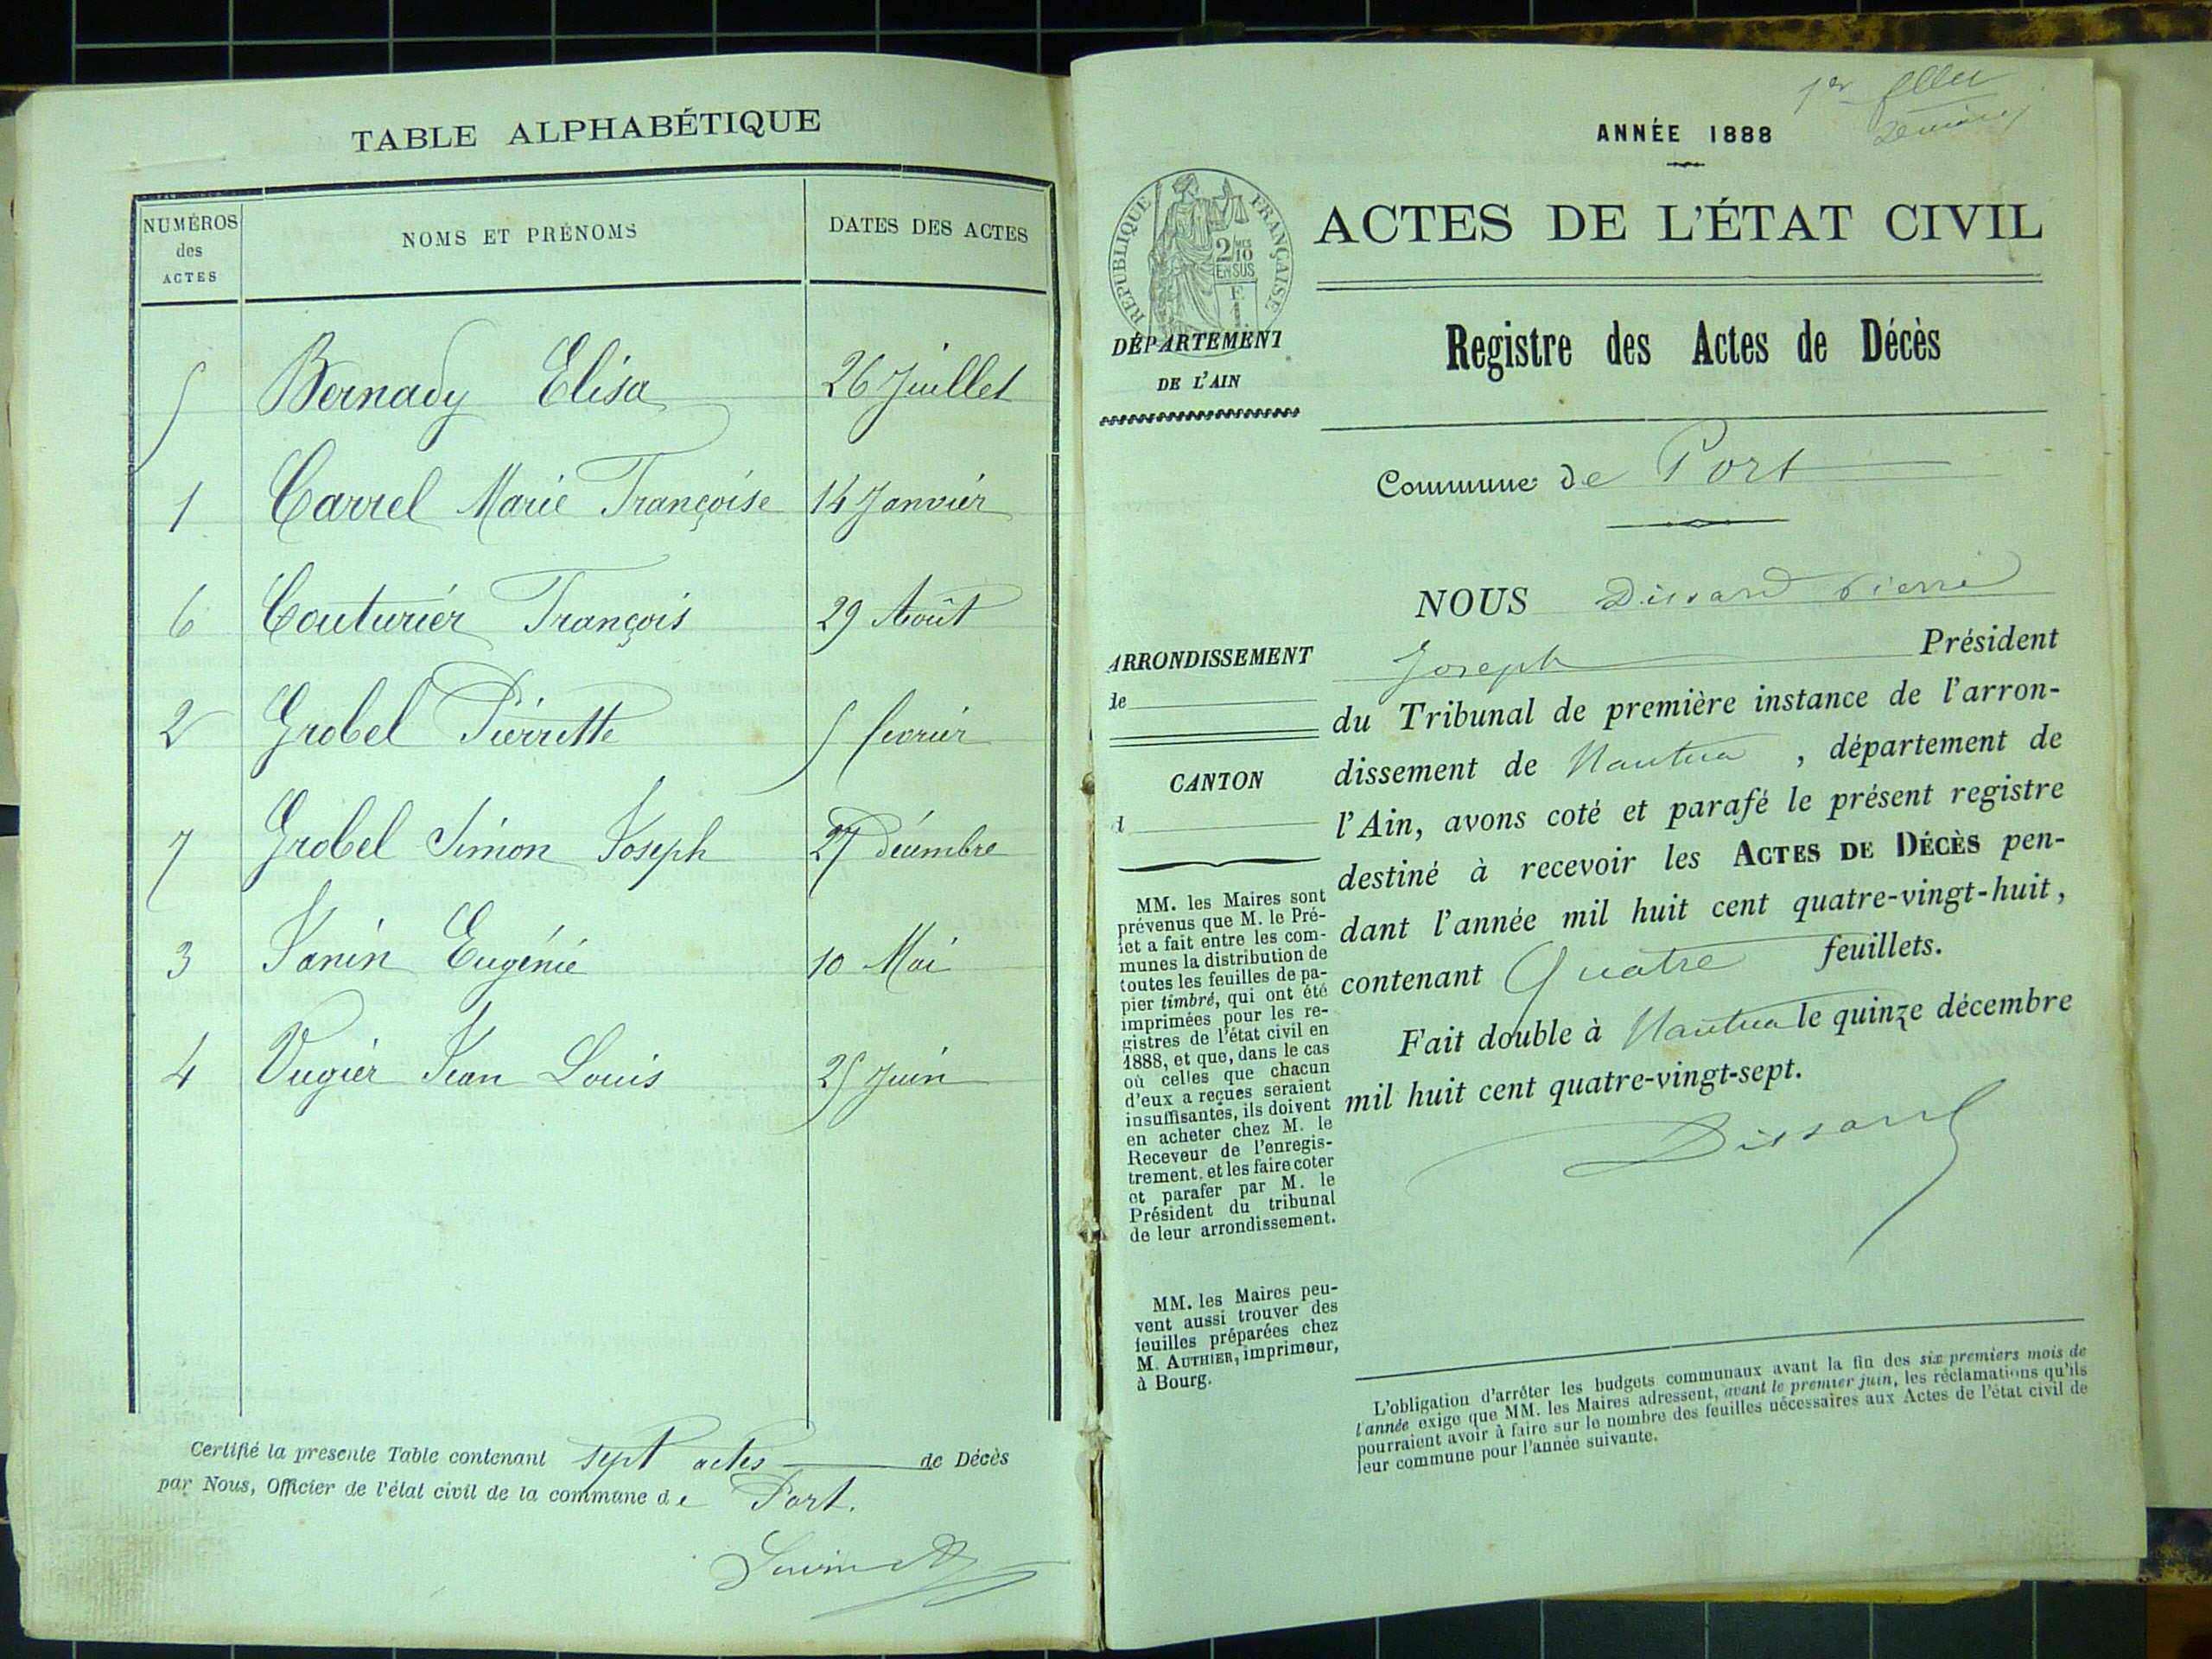 TABLE ALPHABÉTIQUE
NUMÉROS
des
ACTES
NOMS ET PRÉNOMS
DATES DES ACTES
5 Bernady Elisa 26 Juillet
1 Carrel Marie Françoise 14 Janvier
6 Couturier François 29 Août
2 Grobel Pierrette 5 fevrier
7 Grobel Simon Joseph 27 décembre
3 Janin Eugénie 10 Mai
4 Vugier Jean Louis 25 Juin
Certifié la presente Table contenant sept actes de Décès
par Nous, Officier de l'état civil de la commune de Port.
1er
ANNÉE 1888
RÉPUBLIQUE FRANÇAISE
2/10 MES
EN SUS
F.
1.
ACTES DE L'ÉTAT CIVIL
DÉPARTEMENT
DE L'AIN
Registre des Actes de Décès
Commune de Port
NOUS Dissard Pierre
Joseph Président
du Tribunal de première instance de l'arron-
dissement de Nantua, département de
l'Ain, avons coté et parafé le présent registre
destiné à recevoir les ACTES DE DÉCÈS pen-
dant l'année mil huit cent quatre-vingt-huit,
contenant Quatre feuillets.
Fait double à Nantua le quinze décembre
mil huit cent quatre-vingt-sept.
Dissard
ARRONDISSEMENT
de
CANTON
d
MM. les Maires sont
prévenus que M. le Pré-
fet a fait entre les com-
munes la distribution de
toutes les feuilles de pa-
pier timbré, qui ont été
imprimées pour les re-
gistres de l'état civil en
1888, et que, dans le cas
où celles que chacun
d'eux a reçues seraient
insuffisantes, ils doivent
en acheter chez M. le
Receveur de l'enregis-
trement, et les faire coter
et parafer par M. le
Président du tribunal
de leur arrondissement.
MM. les Maires peu-
vent aussi trouver des
feuilles préparées chez
M. AUTHIER, imprimeur,
à Bourg.
L'obligation d'arrêter les budgets communaux avant la fin des six premiers mois de
l'année exige que MM. les Maires adressent, avant le premier juin, les réclamations qu'ils
pourraient avoir à faire sur le nombre des feuilles nécessaires aux Actes de l'état civil de
leur commune pour l'année suivante.